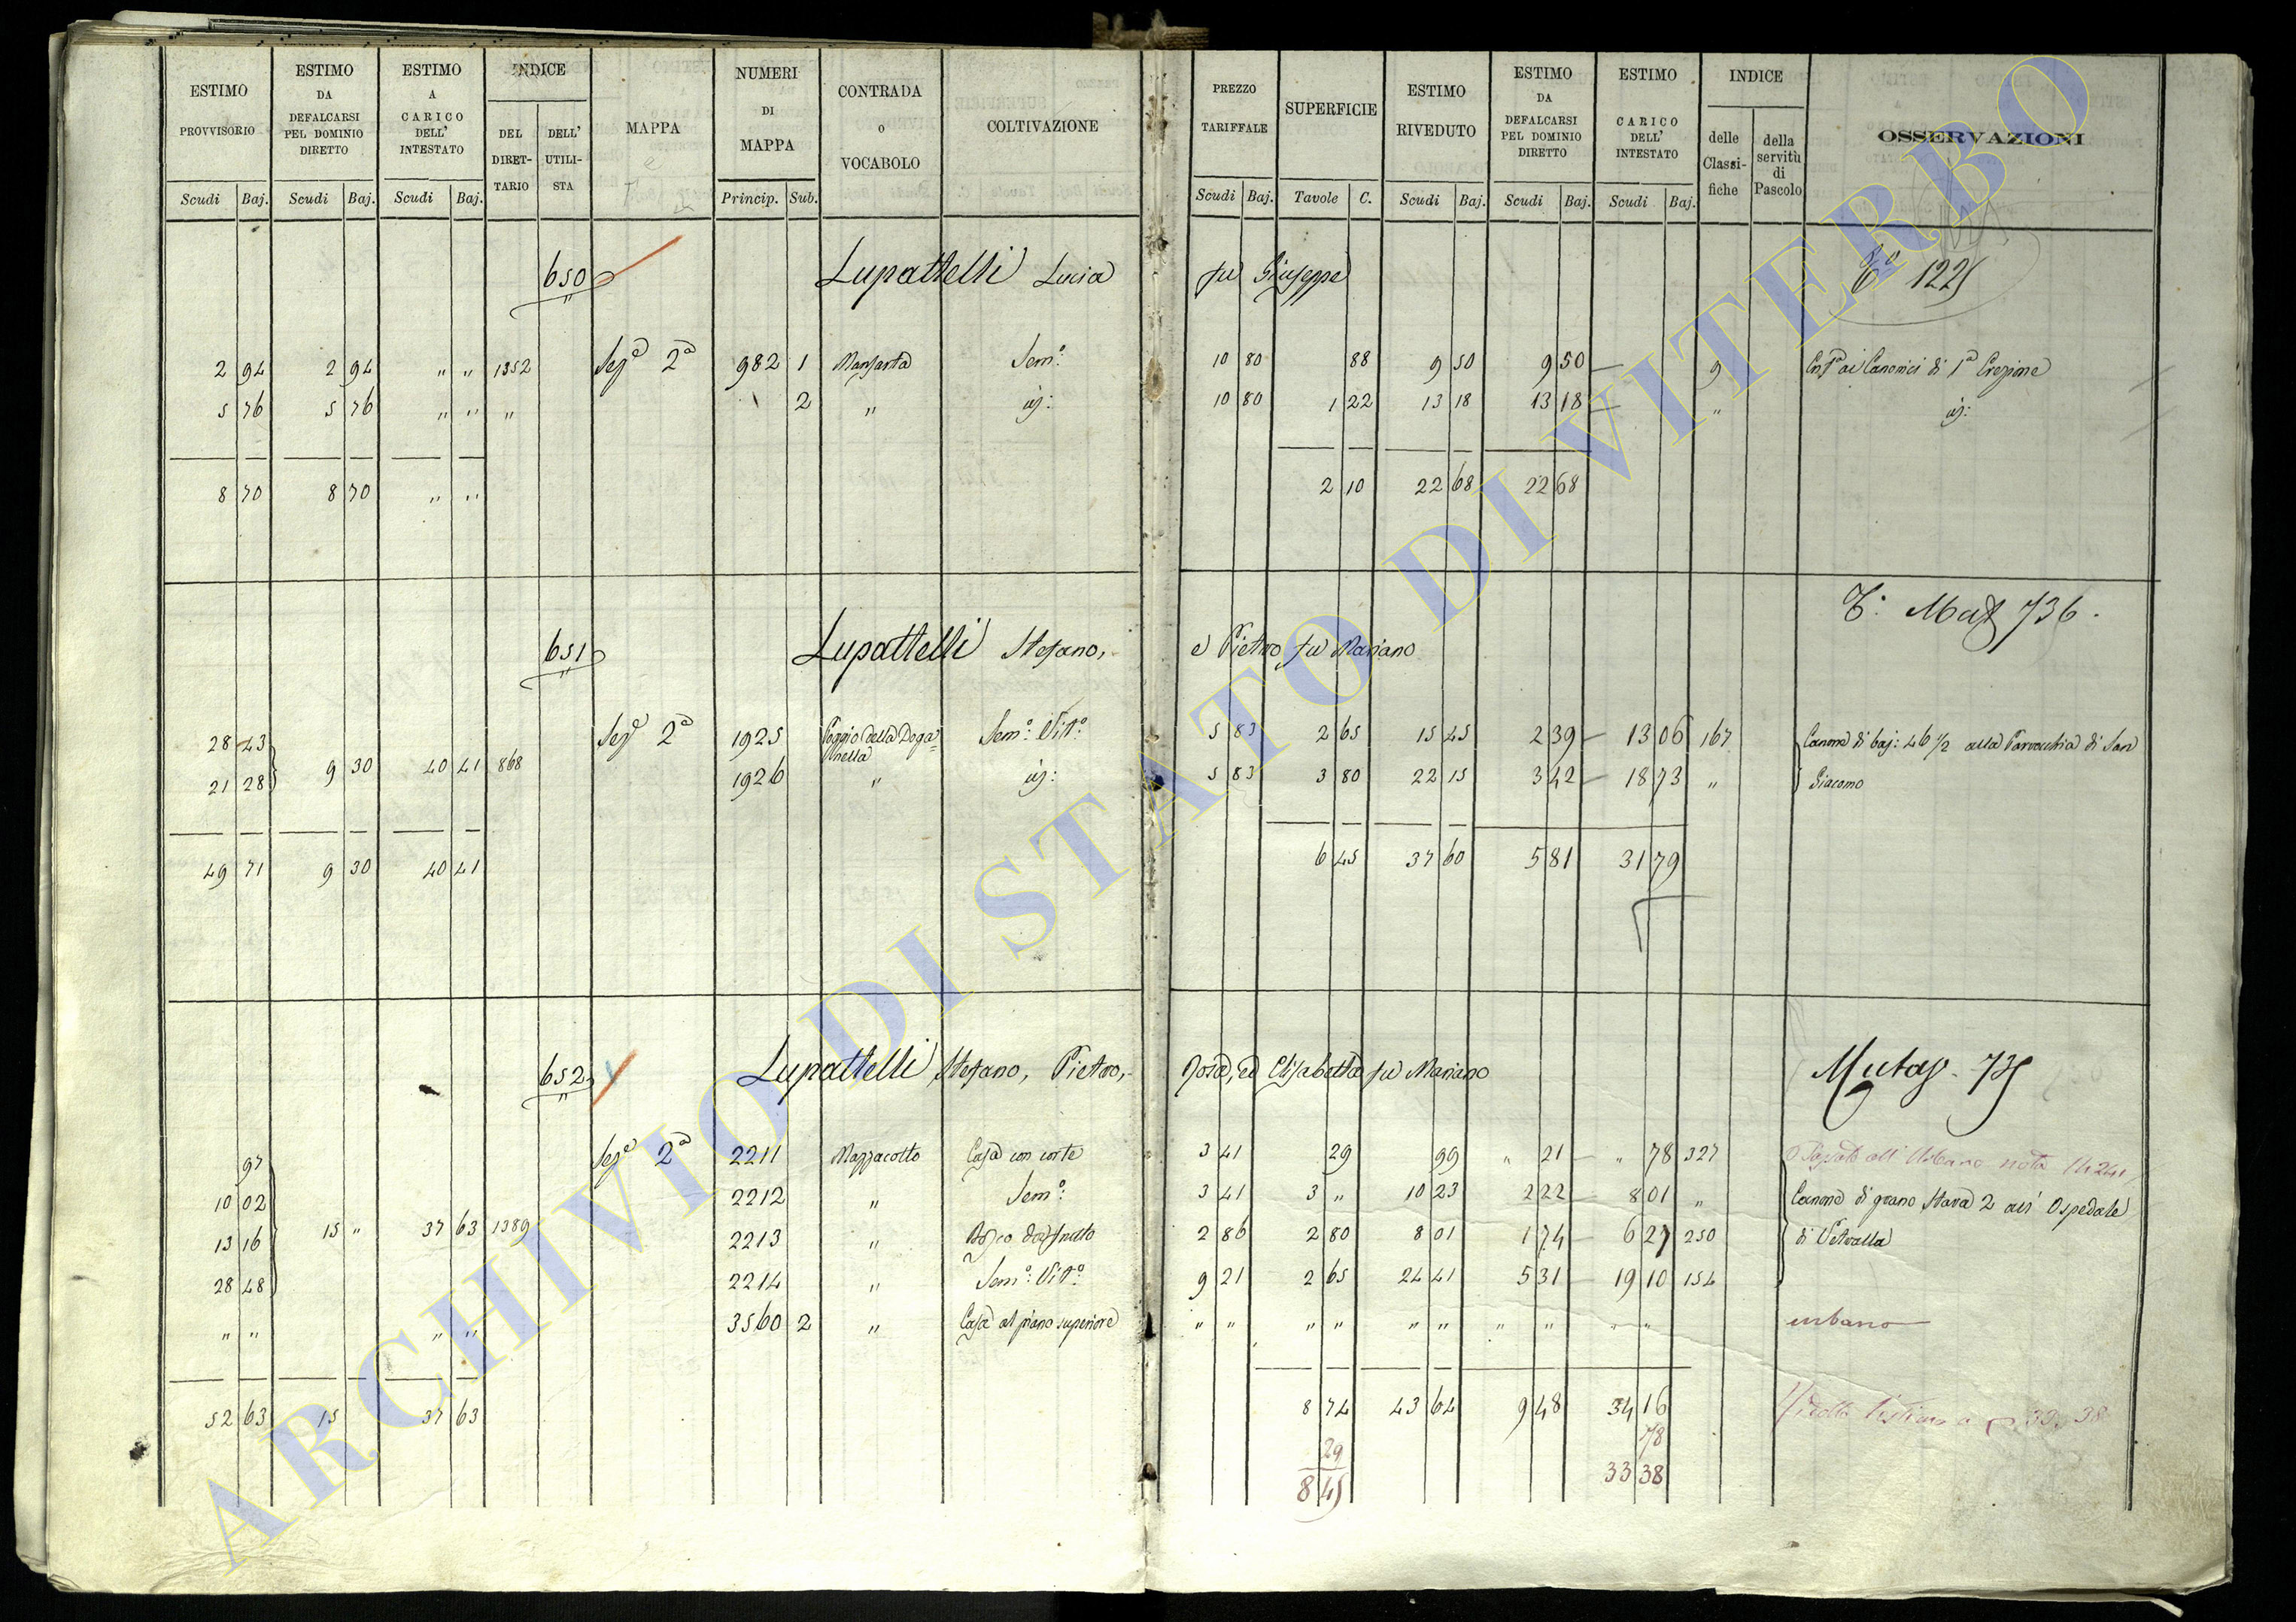 ESTIMO PROVVISORIO | ESTIMO DA DEFALCARSI PEL DOMINIO DIRETTO | ESTIMO A CARICO DELL' INTESTATO | INDICE | MAPPA | NUMERI DI MAPPA | CONTRADA O VOCABOLO | COLTIVAZIONE | PREZZO TARIFFALE | SUPERFICIE | ESTIMO RIVEDUTO | ESTIMO DA DEFALCARSI PEL DOMINIO DIRETTO | ESTIMO CARICO DELL' INTESTATO | INDICE | OSSERVAZIONI
DEL DIRETTARIO | DELL' UTILISTA | delle Classifiche | della servitù di Pascolo
Scudi | Baj. | Scudi | Baj. | Scudi | Baj. | Princip. | Sub. | Scudi | Baj. | Tavole | C. | Scudi | Baj. | Scudi | Baj. | Scudi | Baj.
650 Lupattelli Lucia fu Giuseppe 1225
2 94 | 2 94 | " " | 1352 | Sez.e 2a | 982 | 1 | Sem.o | 10 80 | 88 | 9 50 | 9 50 — | 9 | ai Canonici di 1a Erezione
5 76 | 5 76 | " " | " | 2 | " | id: | 10 80 | 1 22 | 13 18 | 13 18 — | " | id:
8 70 | 8 70 | " " | 2 10 | 22 68 | 22 68
736.
651 Lupattelli Stefano, e Pietro fu Mariano
28 43 | 9 30 | 40 41 | 868 | Sez.e 2a | 1925 | Poggio della Doga=nella | Sem.o Vit.o | 5 83 | 2 65 | 15 45 | 2 39 — | 13 06 | 167 | Canone di baj: 46 1/2 alla Parrocchia di San
21 28 | 1926 | " | id: | 5 83 | 3 80 | 22 15 | 3 42 — | 18 73 | " | Giacomo
49 71 | 9 30 | 40 41 | 6 45 | 37 60 | 5 81 | 31 79
652 Lupattelli Stefano, Pietro, Rosa, ed Elisabetta fu Mariano
97 | Sez.e 2a | 2211 | Mazzacotto | Casa con corte | 3 41 | 29 | 99 | " 21 — | " 78 | 327 | Passato all' Urbano nota
10 02 | 2212 | " | Sem.o | 3 41 | 3 " | 10 23 | 2 22 — | 8 01 | " | Canone di grano Stara 2 all' Ospedale
13 16 | 15 " | 37 63 | 1389 | 2213 | " | Bosco da frutto | 2 86 | 2 80 | 8 01 | 1 74 — | 6 27 | 250 | di Vetralla
28 48 | 2214 | " | Sem.o Vit.o | 9 21 | 2 65 | 24 41 | 5 31 — | 19 10 | 154
" " | " " | 3560 | 2 | " | Casa al piano superiore | " " | " " | " " | " " | " " | urbano
52 63 | 15 | 37 63 | 8 74 | 43 64 | 9 48 | 34 16
29 | 78
8 45 | 33 38
ARCHIVIO DI STATO DI VITERBO